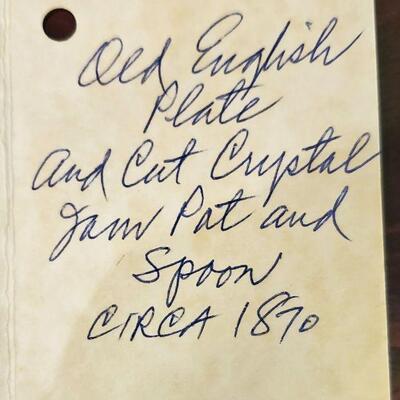 Old English
Plate
And Cut Crystal
Jam Pot and
Spoon
CIRCA 1870